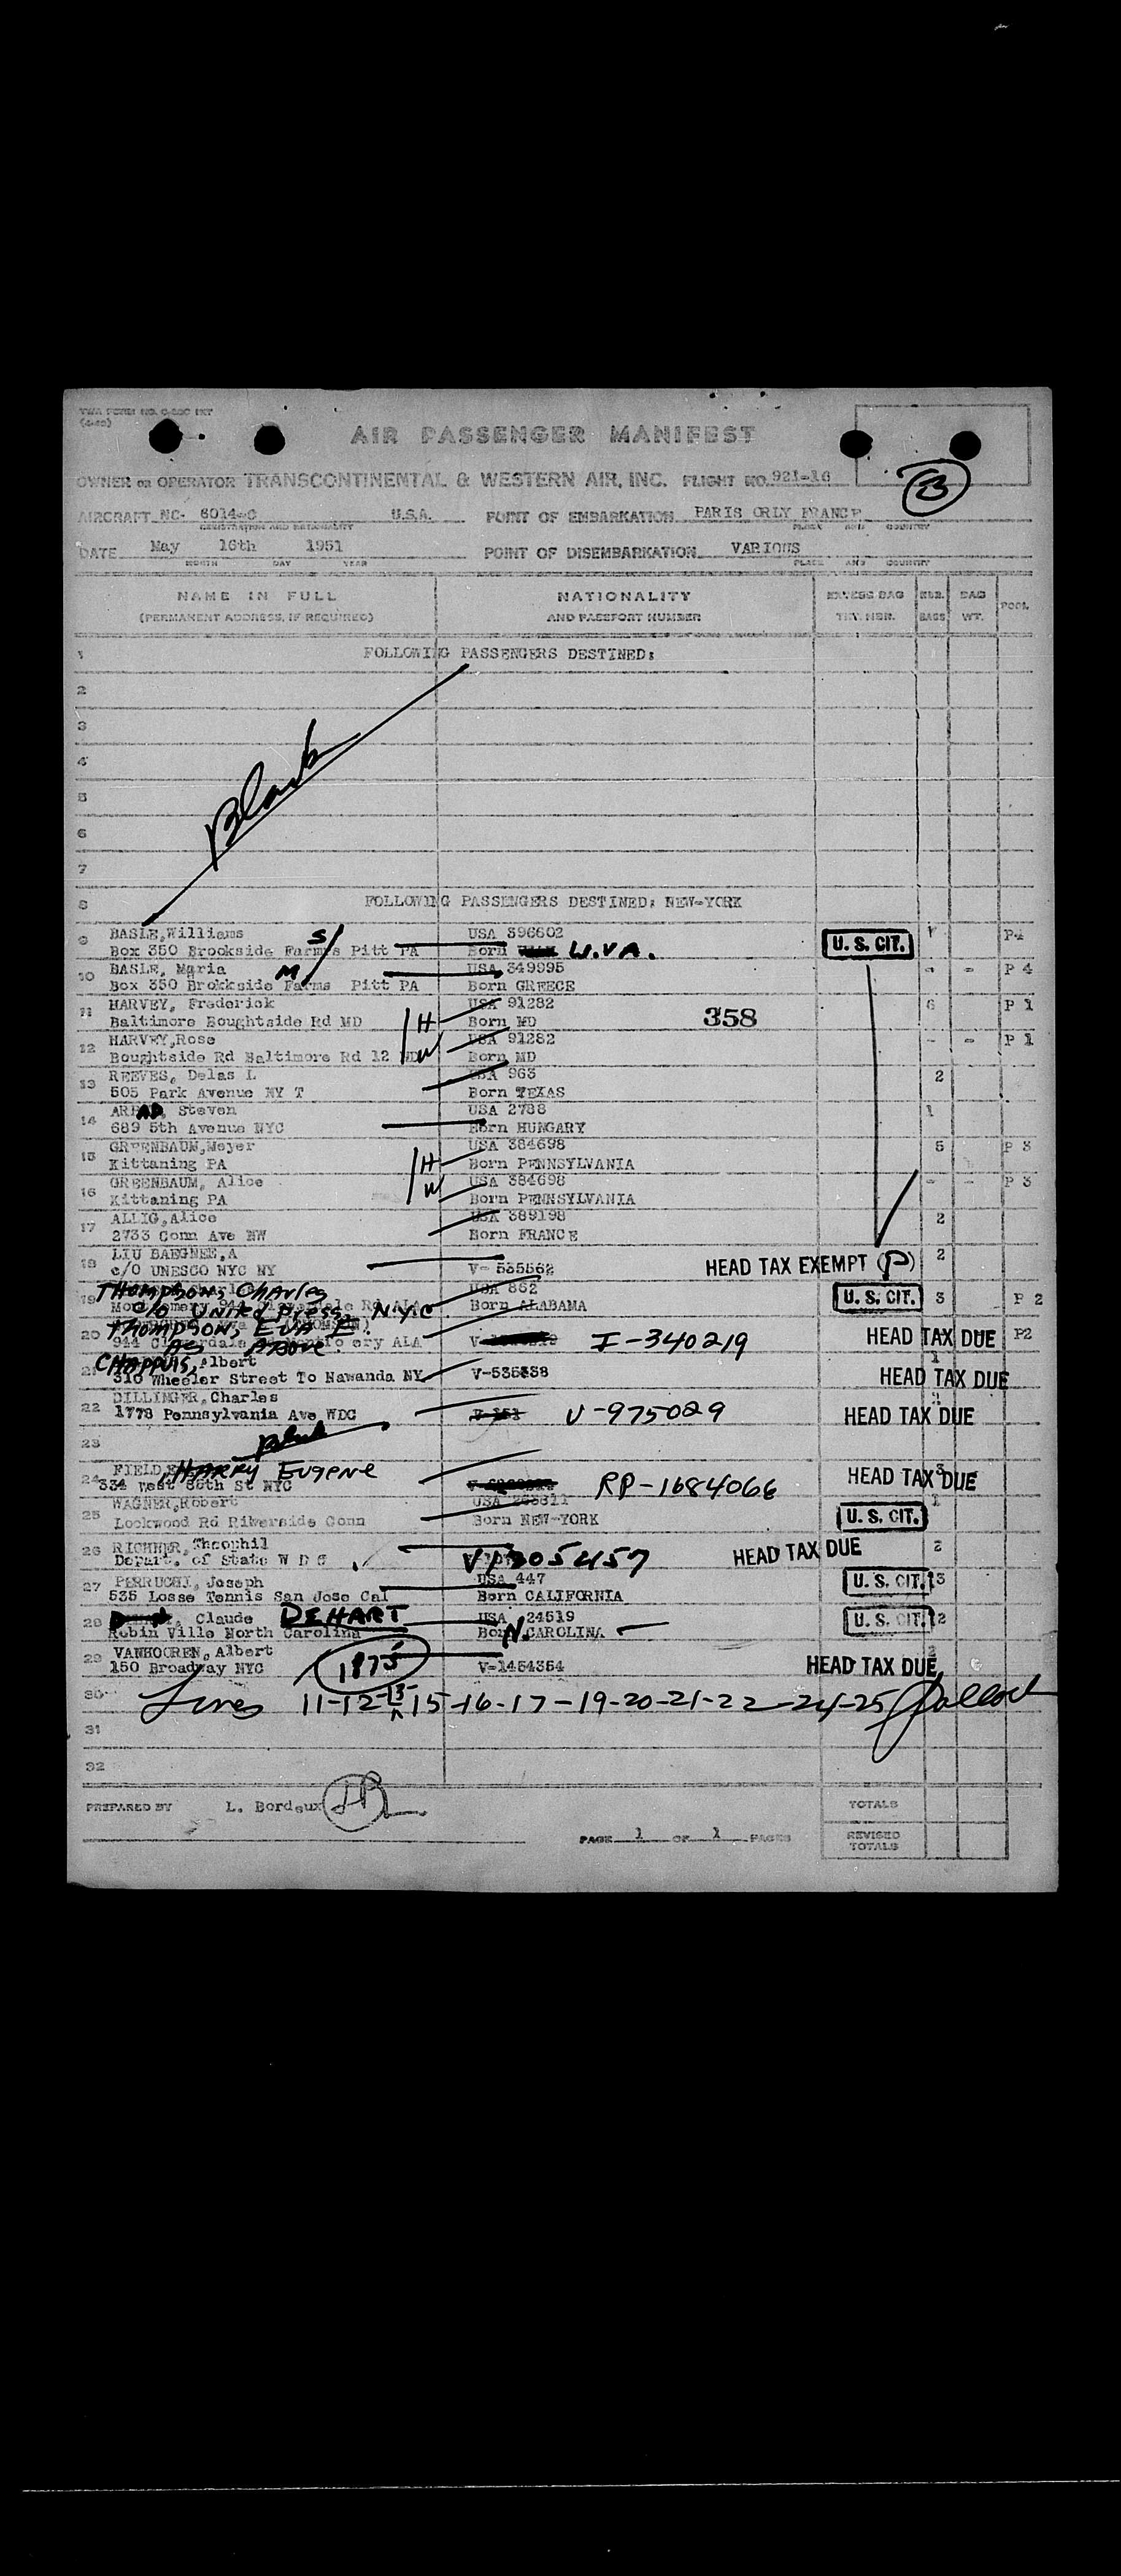 AIR PASSENGER MANIFEST
OWNER OR OPERATOR TRANSCONTINENTAL & WESTERN AIR, INC. FLIGHT NO. 921-16
B
AIRCRAFT NC- 6014-C U.S.A. POINT OF EMBARKATION PARIS ORLY FRANCE
REGISTRATION AND NATIONALITY PLACE AND COUNTRY
DATE May 16th 1951 POINT OF DISEMBARKATION VARIOUS
MONTH DAY YEAR PLACE AND COUNTRY
NAME IN FULL NATIONALITY EXCESS BAG NBR. BAG POOL
(PERMANENT ADDRESS, IF REQUIRED) AND PASSPORT NUMBER TKT. NBR. BAGS WT.
1 FOLLOWING PASSENGERS DESTINED:
2
3
4
Blank
5
6
7
8 FOLLOWING PASSENGERS DESTINED: NEW-YORK
9 BASLE,Williams S USA 396602 U. S. CIT.
Box 350 Brookside Farms Pitt PA Born W.VA.
10 BASLE, Maria M USA 349995 - - P 4
Box 350 Brokkside Farms Pitt PA Born GREECE
11 HARVEY, Frederick H USA 91282 358 6 P 1
Baltimore Boughtside Rd MD Born MD
12 HARVEY,Rose W USA 91282 - - P 1
Boughtside Rd Baltimore Rd 12 MD Born MD
13 REEVES, Delas L USA 963 2
505 Park Avenue NY T Born TEXAS
14 Steven USA 2788 1
689 5th Avenue NYC Born HUNGARY
15 GREENBAUM,Meyer H USA 384698 5 P 3
Kittaning PA Born PENNSYLVANIA
16 GREENBAUM, Alice W USA 384698 - - P 3
Kittaning PA Born PENNSYLVANIA
17 ALLIG,Alice USA 389198 2
2733 Conn Ave NW Born FRANCE
18 LIU BAEGNEE,A HEAD TAX EXEMPT (P) 2
c/O UNESCO NYC NY V- 535562
19 Thompson, Charles USA 852 U. S. CIT. 3 P 2
c/o United Press, N.Y.C. Born ALABAMA
20 Thompson, Eva E. V- I-340219 HEAD TAX DUE P2
As Above.
21 CHAPPUIS, Albert V-535338 HEAD TAX DUE 1
310 Wheeler Street To Nawanda NY
22 DILLINGER,Charles V-975029 HEAD TAX DUE
1778 Pennsylvania Ave WDC
23 Blank
24 FIELD, HARRY EUGENE RP-1684066 HEAD TAX DUE 3
334 West 86th St NYC
25 WAGNER,Robert USA U. S. CIT. 1
Lockwood Rd Riverside Conn Born NEW-YORK
26 Theophil V1205457 HEAD TAX DUE 2
Depart. of State W D C
27 PERRUCHI, Joseph USA 447 U. S. CIT. 3
535 Losse Tennis San Jose Cal Born CALIFORNIA
28 Claude DEHART USA 24519 U. S. CIT. 2
Robin Ville North Carolina Born N. CAROLINA
29 VANHOOREN, Albert 1875 V-1454354 HEAD TAX DUE
150 Broadway NYC
30 Lines 11-12-13-15-16-17-19-20-21-22-24-25
31
32
PREPARED BY L. Bordeux TOTALS
PAGE 1 OF 1 PAGES REVISED
TOTALS